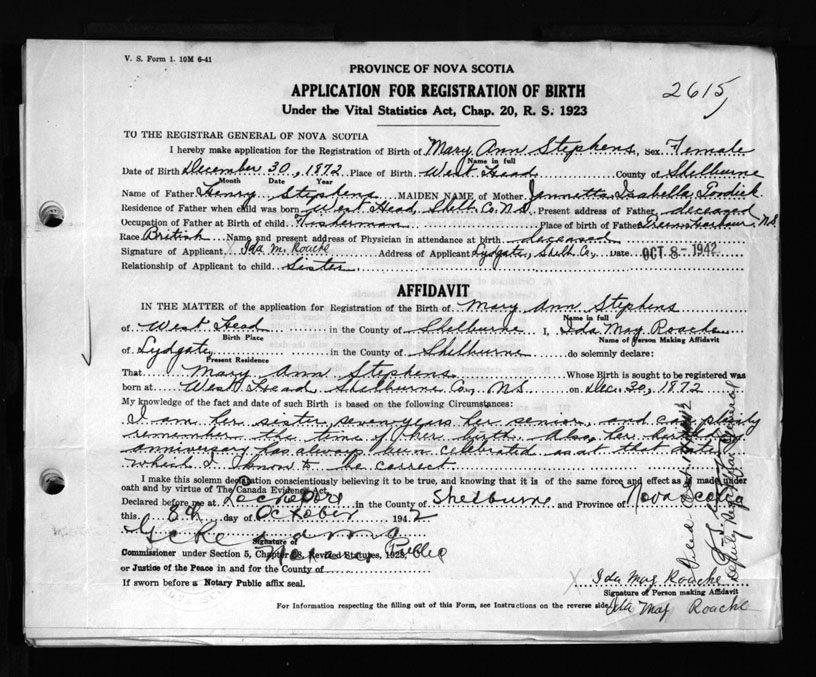 V. S. Form 1. 10M 6-41
PROVINCE OF NOVA SCOTIA
2615
APPLICATION FOR REGISTRATION OF BIRTH
Under the Vital Statistics Act, Chap. 20, R. S. 1923
TO THE REGISTRAR GENERAL OF NOVA SCOTIA
I hereby make application for the Registration of Birth of Mary Ann Stephens, Sex Female
Name in full
Date of Birth December 30, 1872 Place of Birth West Head County of Shelburne
Month Date Year
Name of Father Henry Stephens MAIDEN NAME of Mother Jannetta Isabella
Residence of Father when child was born West Head, Shelb. Co. N.S. Present address of Father deceased
Occupation of Father at Birth of child Fisherman Place of birth of Father Green Harbour, N.S.
Race British Name and present address of Physician in attendance at birth deceased
Signature of Applicant Ida M. Roache Address of Applicant Lydgate, Shelb. Co. Date OCT 8 - 1942
Relationship of Applicant to child Sister
AFFIDAVIT
IN THE MATTER of the application for Registration of the Birth of Mary Ann Stephens
Name in full
of West Head in the County of Shelburne I, Ida May Roache
Birth Place Name of Person Making Affidavit
of Lydgate in the County of Shelburne do solemnly declare:
Present Residence
That Mary Ann Stephens Whose Birth is sought to be registered was
born at West Head Shelburne Co. N.S. on Dec. 30, 1872
My knowledge of the fact and date of such Birth is based on the following Circumstances:
I am her sister, seven years her senior, and can plainly
remember the time of her birth. Also, her birthday
anniversary has always been celebrated as at that date
which I know to be correct
I make this solemn declaration conscientiously believing it to be true, and knowing that it is of the same force and effect as if made under
oath and by virtue of The Canada Evidence Act.
Declared before me at Lockeport in the County of Shelburne and Province of Nova Scotia
this 8th day of October 1942
Signature of
Notary Public
Commissioner under Section 5, Chapter 38, Revised Statutes, 1923,
or Justice of the Peace in and for the County of
If sworn before a Notary Public affix seal.
X Ida May Roache
Signature of Person making Affidavit
Ida May Roache
For Information respecting the filling out of this Form, see Instructions on the reverse side.
Deputy Registrar General